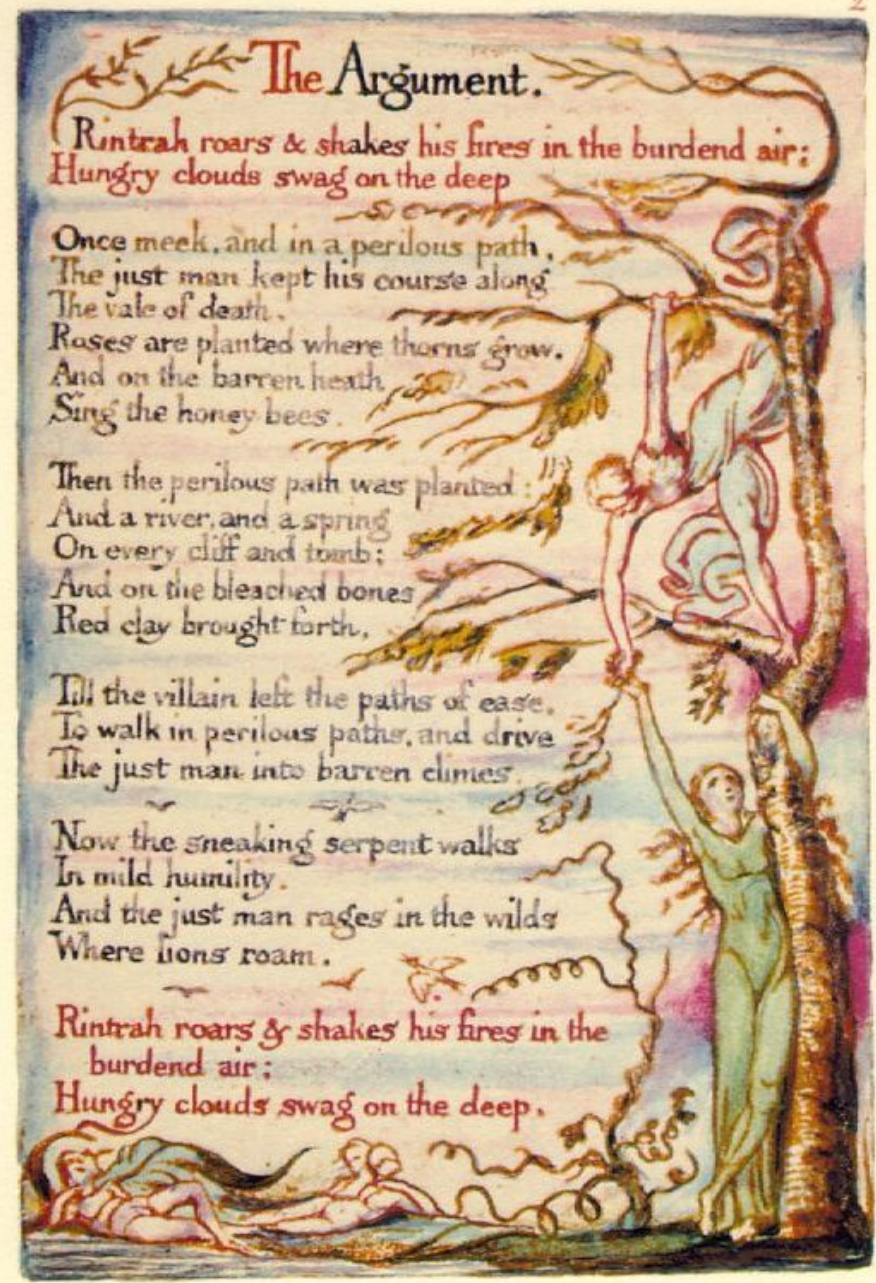 2
The Argument.
Rintrah roars & shakes his fires in the burdend air:
Hungry clouds swag on the deep
Once meek, and in a perilous path,
The just man kept his course along
The vale of death.
Roses are planted where thorns grow.
And on the barren heath
Sing the honey bees.
Then the perilous path was planted:
And a river, and a spring
On every cliff and tomb;
And on the bleached bones
Red clay brought forth.
Till the villain left the paths of ease,
To walk in perilous paths, and drive
The just man into barren climes.
Now the sneaking serpent walks
In mild humility.
And the just man rages in the wilds
Where lions roam.
Rintrah roars & shakes his fires in the
burdend air;
Hungry clouds swag on the deep.